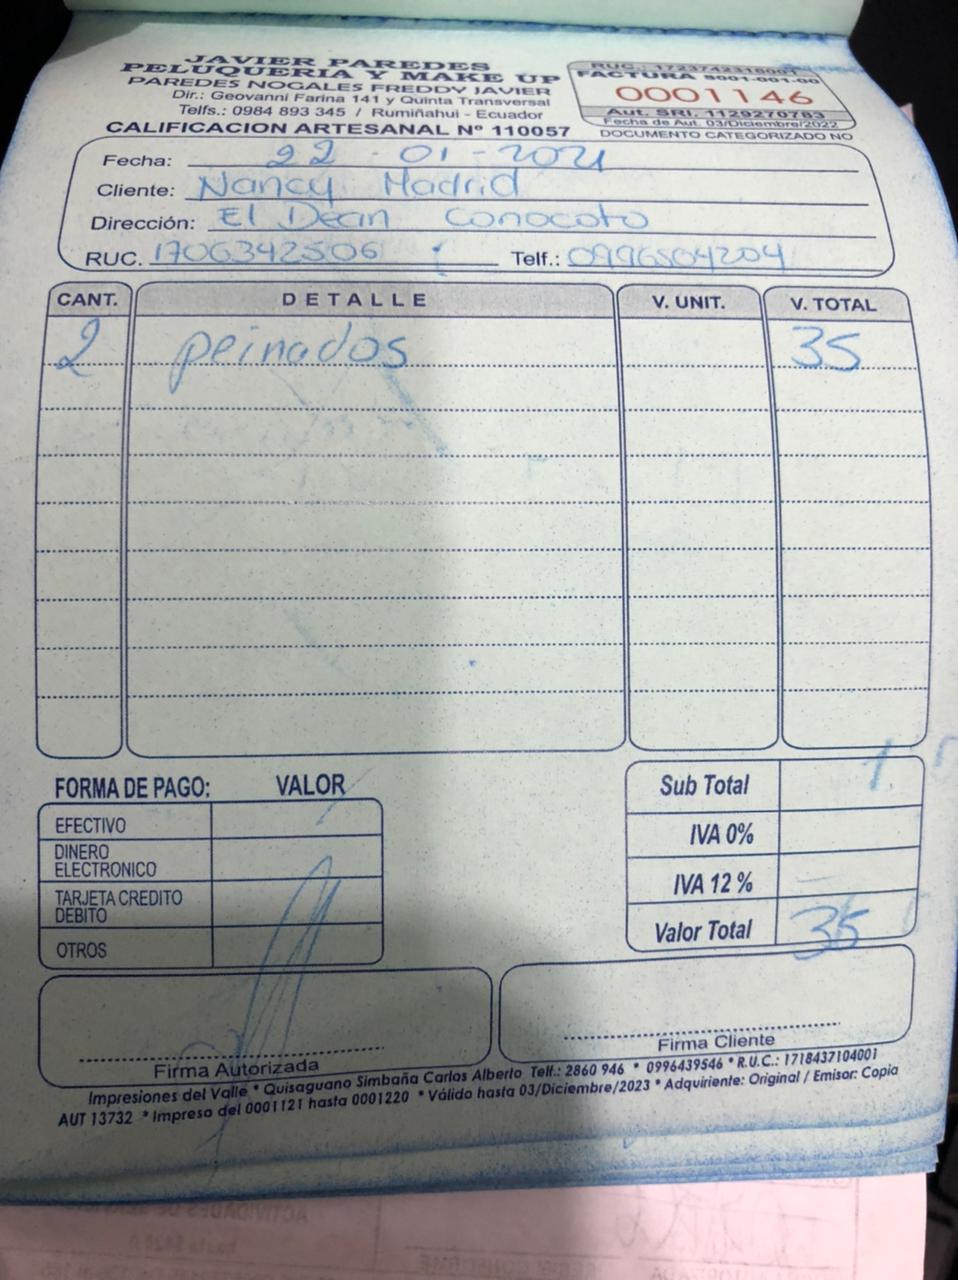 JAVIER PAREDES
PELUQUERIA Y MAKE UP
PAREDES NOGALES FREDDY JAVIER
Dir.: Geovanni Farina 141 y Quinta Transversal
Telfs.: 0984 893 345 / Rumiñahui - Ecuador
CALIFICACION ARTESANAL Nº 110057
RUC.:
FACTURA S001-001-00
0001146
Aut. SRI. 1129270783
Fecha de Aut. 03/Diciembre/2022
DOCUMENTO CATEGORIZADO NO
Fecha: 22 - 01 - 2021
Cliente: Nancy Madrid
Dirección: El Dean Conocoto
RUC. 1706342506 Telf.: 0996504204
CANT. DETALLE V. UNIT. V. TOTAL
2 peinados 35
FORMA DE PAGO: VALOR
EFECTIVO
DINERO
ELECTRONICO
TARJETA CREDITO
DEBITO
OTROS
Sub Total
IVA 0%
IVA 12 %
Valor Total 35
Firma Autorizada
Firma Cliente
Impresiones del Valle * Quisaguano Simbaña Carlos Alberto Telf.: 2860 946 * 0996439546 * R.U.C.: 1718437104001
AUT 13732 * Impreso del 0001121 hasta 0001220 * Válido hasta 03/Diciembre/2023 * Adquiriente: Original / Emisor: Copia